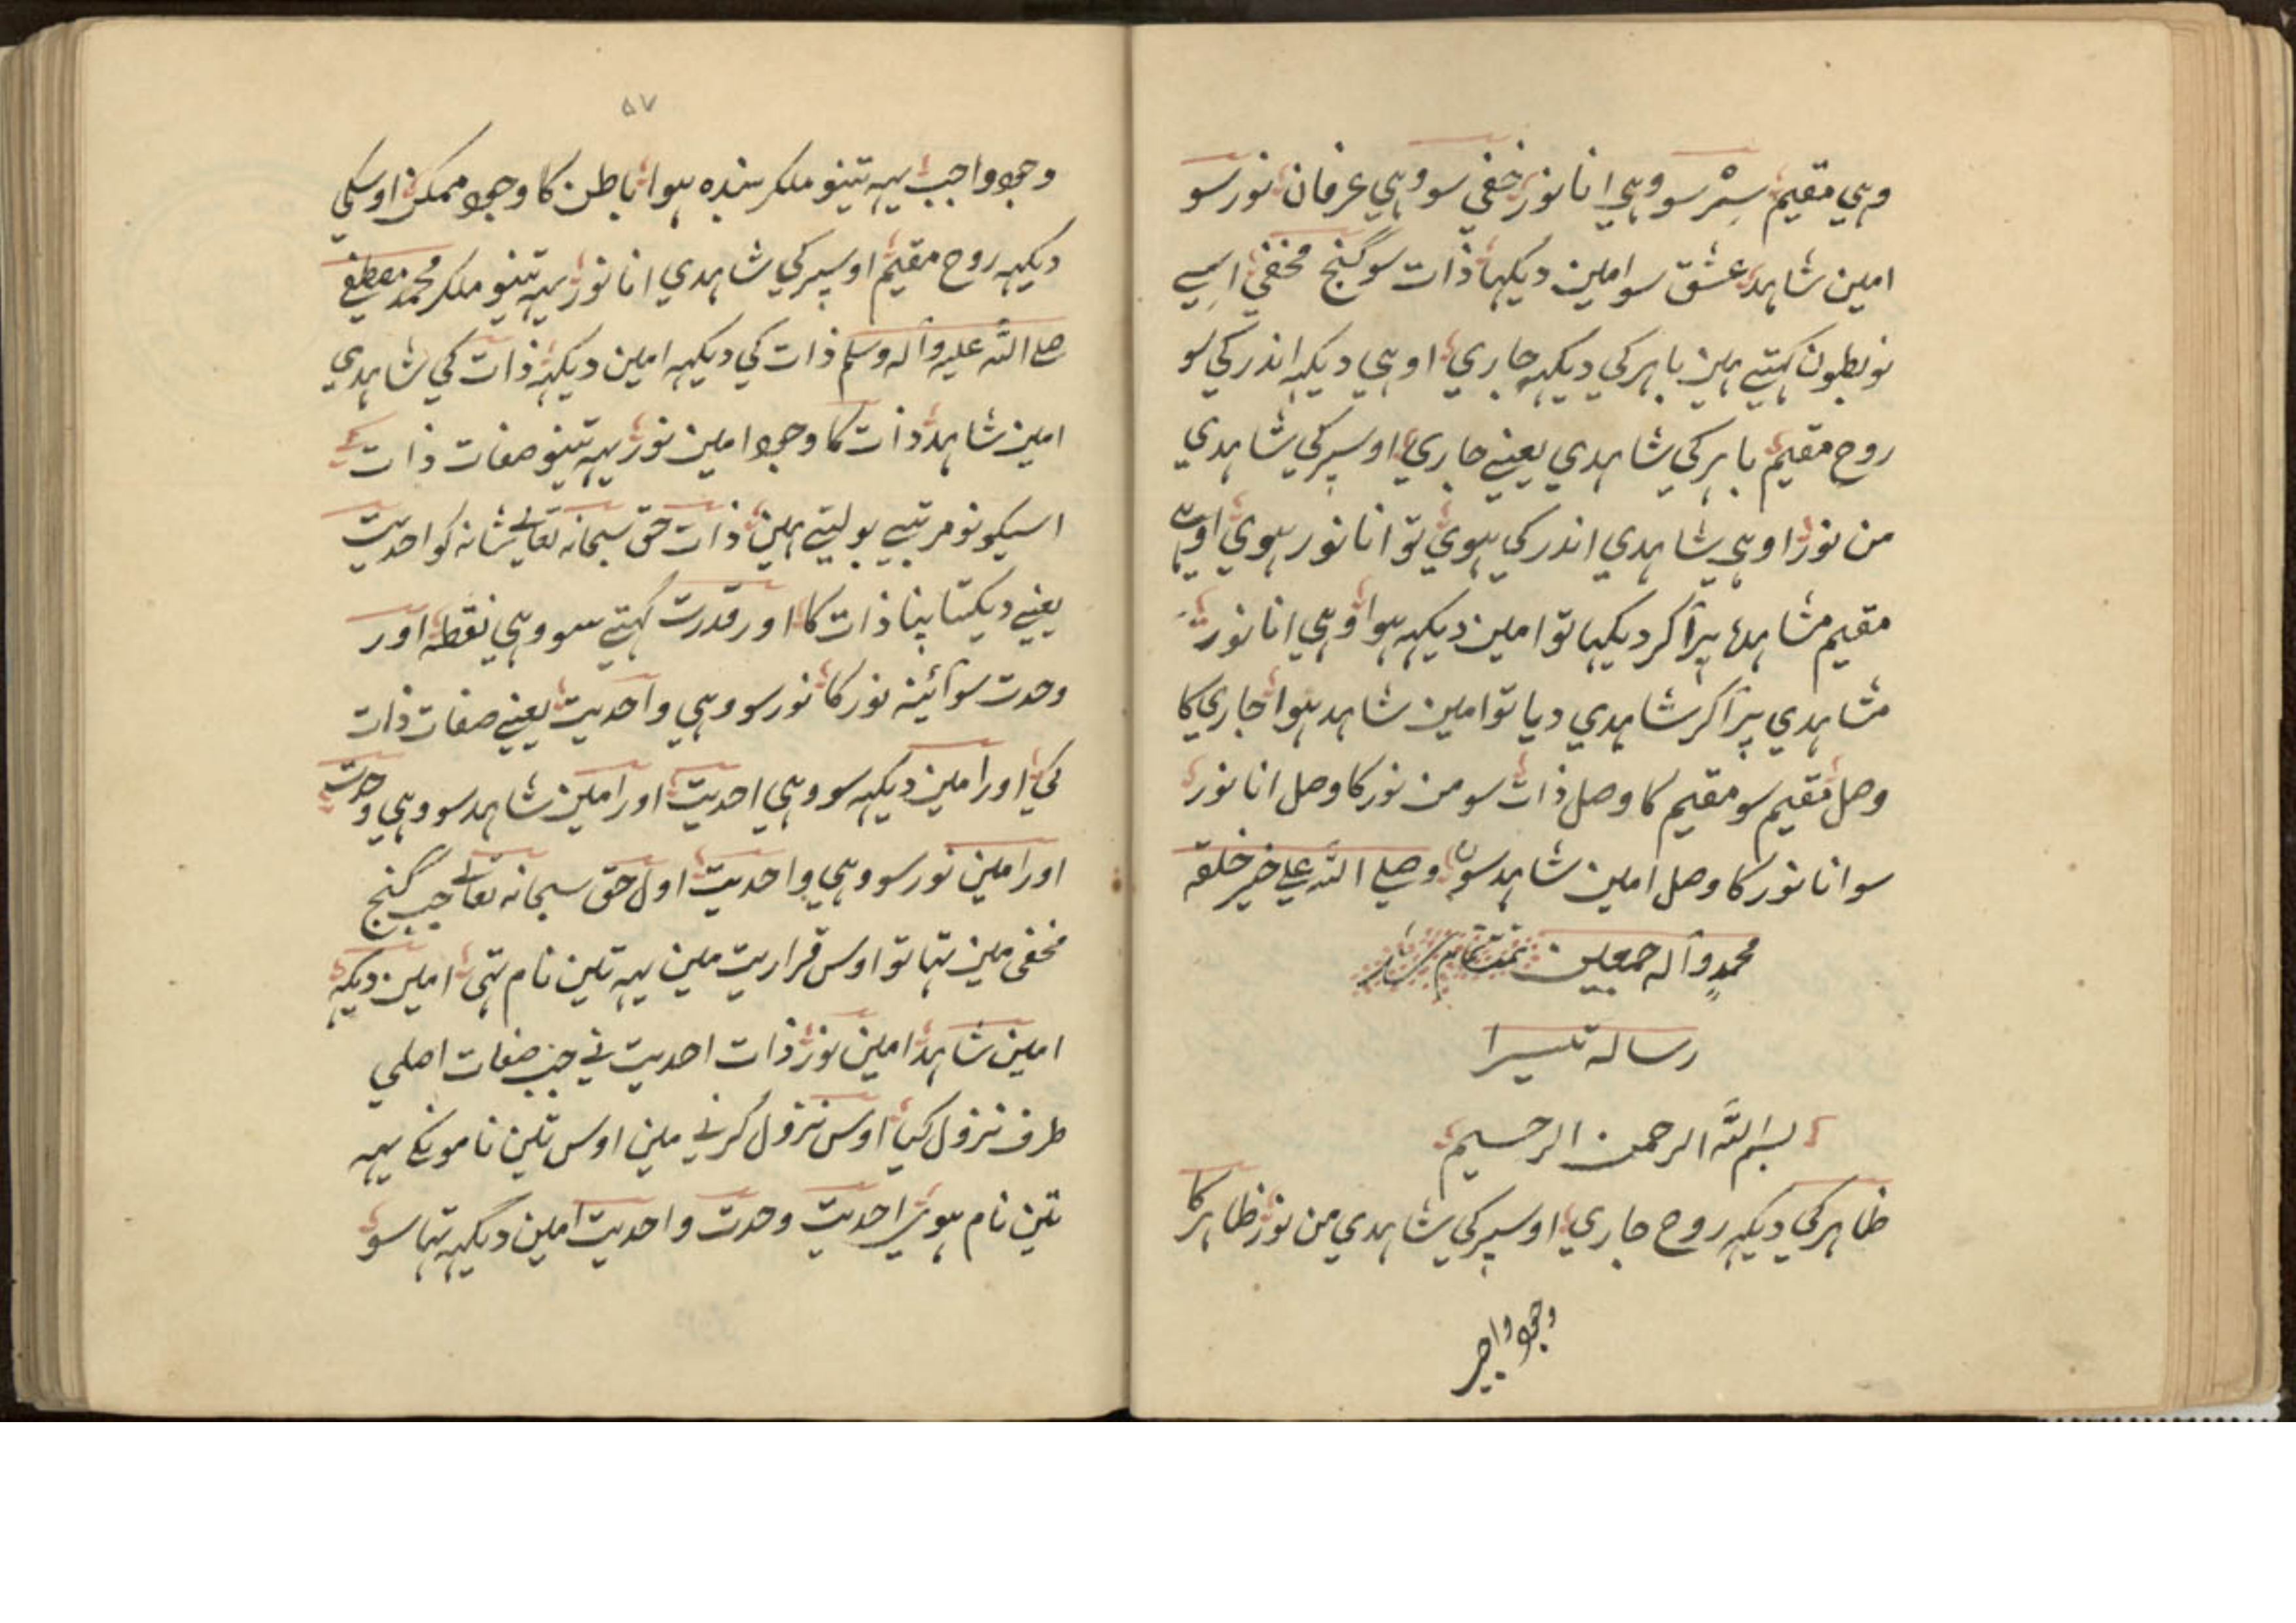 وہي مقيم سِرْ سو وہي انا نور خفي سو وہي عرفان نور سو
امين شاہد عشق سو امين ديکہا ذات سو گنج مخفي اسے
نو بطون کہتے ہين باہر کي ديکہہ جاري اوہي ديکہہ اندر کي سو
روح مقيم باہر کي شاہدي يعنے جاري اوسپر کي شاہدي
من نور اوہي شاہدي اندر کي ہوي تو انا نور ہوي
مقيم مشاہدہ پر آکر ديکہا تو امين ديکہہ ہوا وہي انا نور
مشاہدي پر آکر شاہدي ديا تو امين شاہد ہوا جاري کا
وصل مقيم سو مقيم کا وصل ذات سو من نور کا وصل انا نور
سو انا نور کا وصل امين شاہد سو وصلے اللّه علے خير خلقه
محمدٍ وآله جمعين تمت تمام شد
رساله تيسرا
بسم اللّه الرحمن الرحيم
ظاہر کي ديکہہ روح جاري اوسپر کي شاہدي من نور ظاہر کا
وجود واجب
۵۷
وجود واجب يہہ تينو ملکر بندہ ہوا باطن کا وجود ممکن اوسکي
ديکہہ روح مقيم اوسپر کي شاہدي انا نور يہہ تينو ملکر محمد مصطفے
صلے اللّه عليه وآله وسلم ذات کي ديکہہ امين ديکہہ ذات کي شاہدي
امين شاہد ذات کا وجود امين نور يہہ تينو صفات ذات کے
اسيکو نو مرتبے بولتے ہين ذات حق سبحانه تعالے شانه کو احديت
يعنے ديکتا پنا ذات کا اور قدرت کہتے سو وہي نقطہ اور
وحدت سو آئينہ نور کا نور سو وہي واحديت يعنے صفات ذات
کي اور امين ديکہہ سو وہي احديت اور امين شاہد سو وہي وحدت
اور امين نور سو وہي واحديت اول حق سبحانه تعالے جب گنج
مخفي مين تہا تو اوس قراريت مين يہہ تين نام تہي امين ديکہہ
امين شاہد امين نور ذات احديت ني جب صفات اصلي
طرف نزول کيا اوس نزول کرنے مين اوس تين نامونکے يہہ
تين نام ہوي احديت وحدت واحديت امين ديکہہ تہا سو